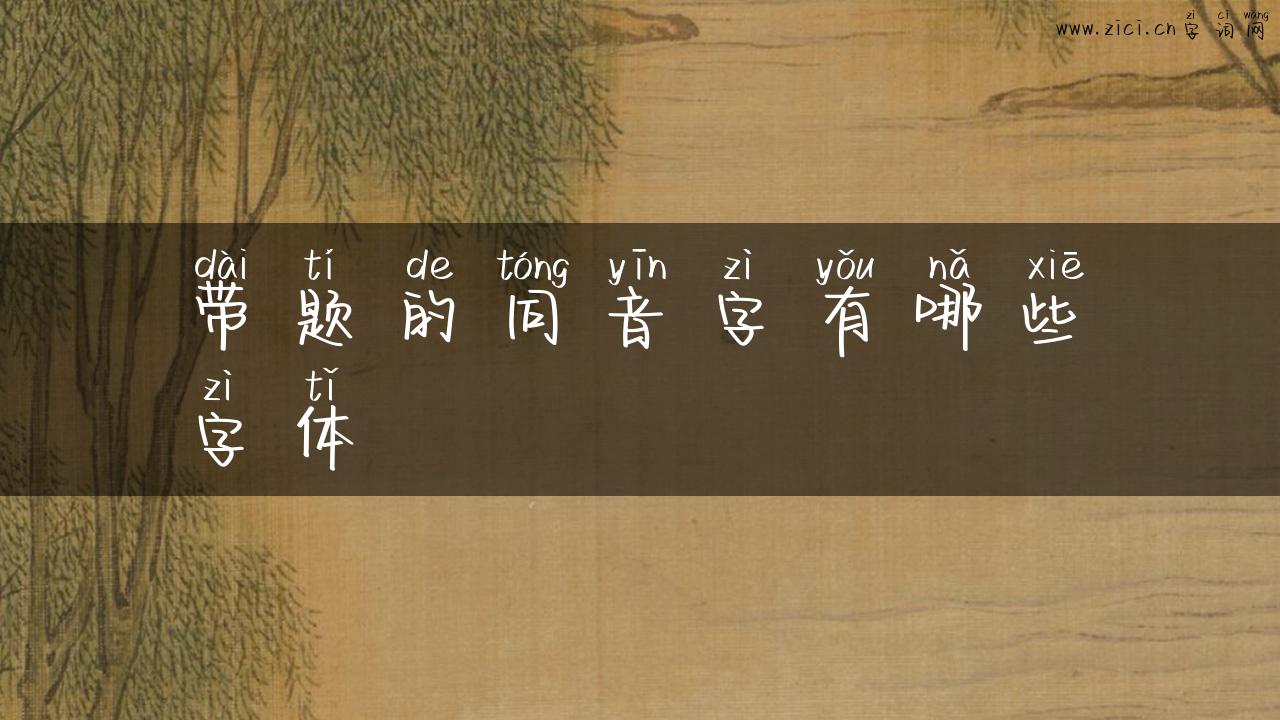 zì cí wǎng
www.zici.cn字词网
dài tí de tóng yīn zì yǒu nǎ xiē
带题的同音字有哪些
zì tǐ
字体